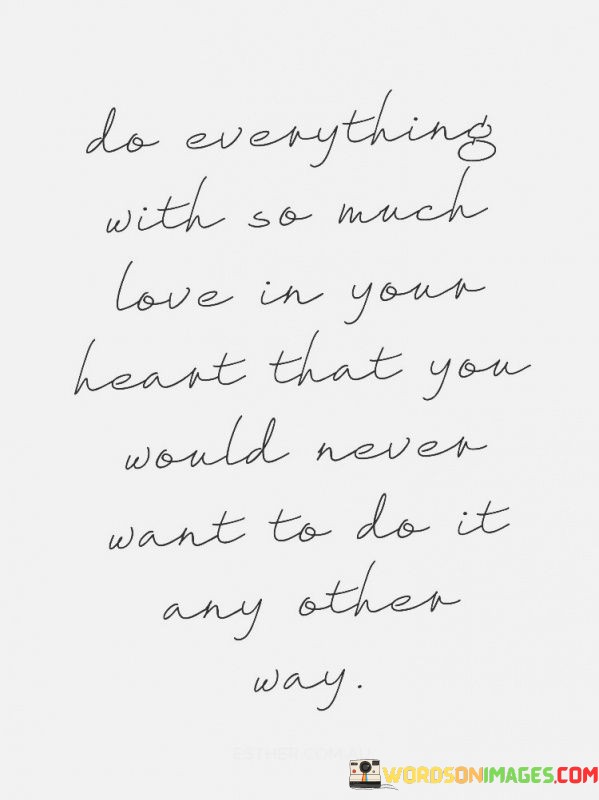 do everything
with so much
love in your
heart that you
would never
want to do it
any other
way.
ESTHER.COM.AU
WORDSONIMAGES.COM